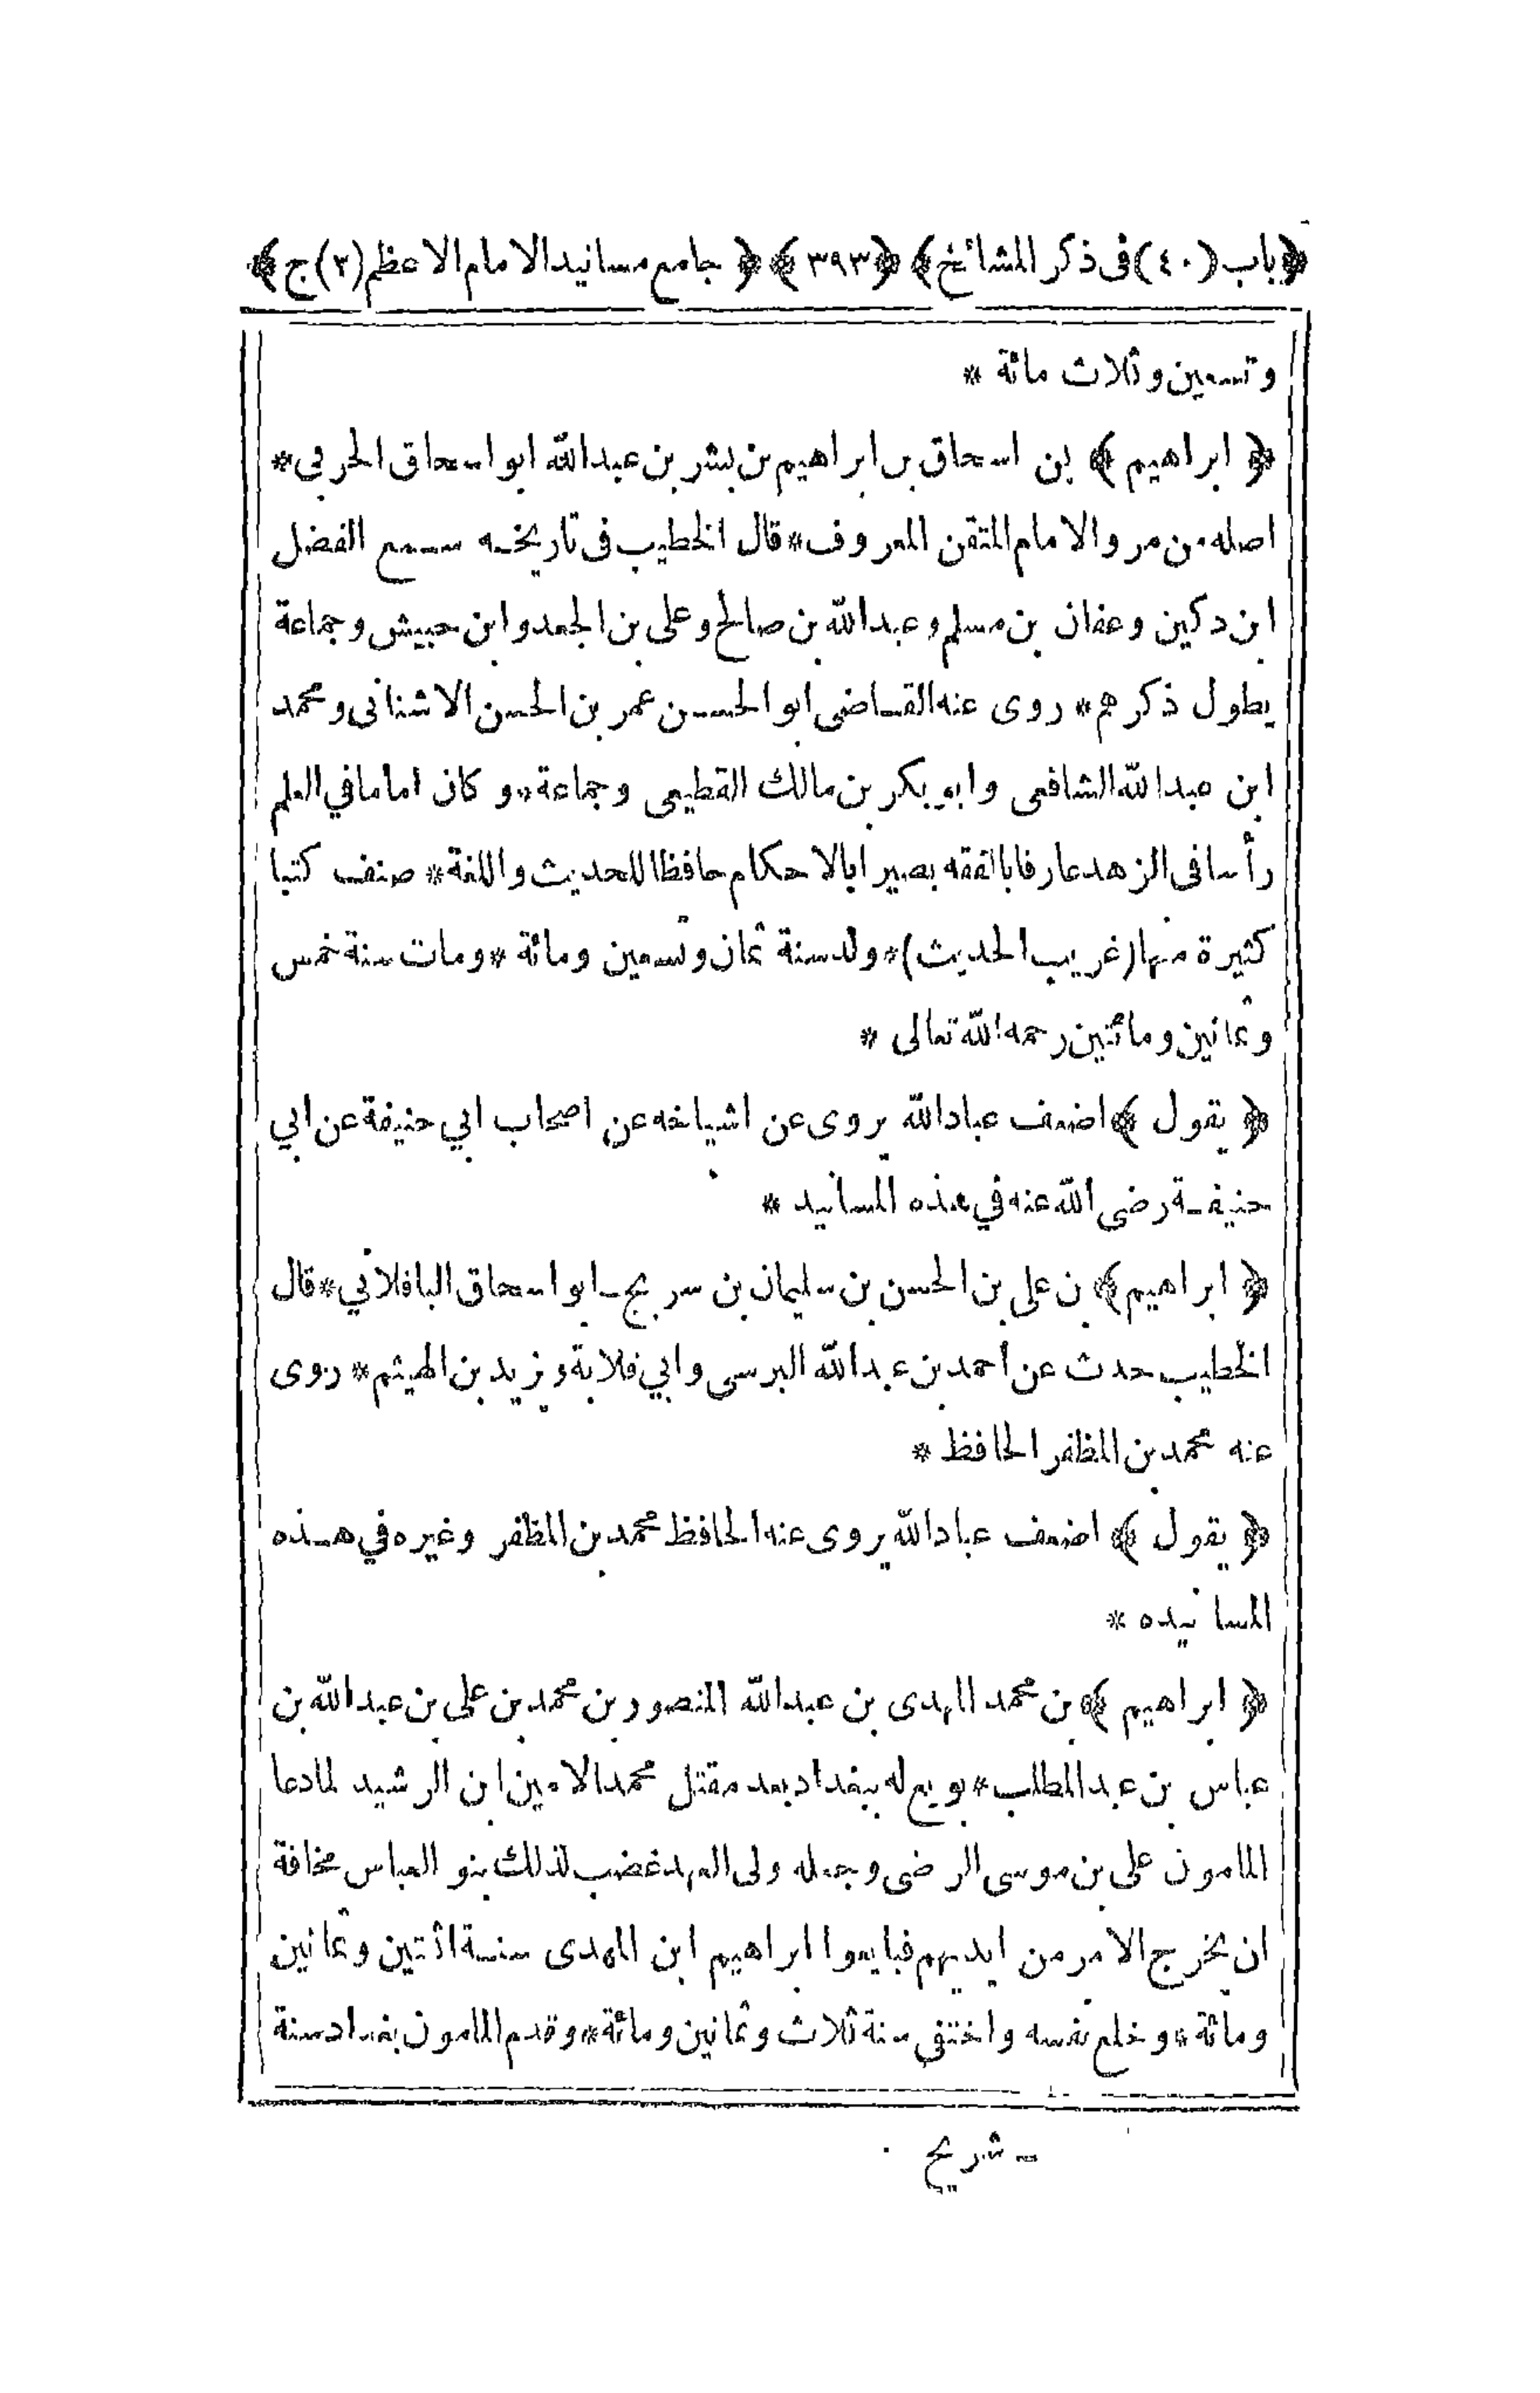 ﴿باب (٤٠) فى ذكر المشائخ﴾ ﴿٣٩٣﴾ ﴿جامع مسانيد الامام الاعظم (٢) ج﴾
وتسعين وثلاث مائة *
﴿ ابراهيم ﴾ بن اسحاق بن ابراهيم بن بشر بن عبدالله ابو اسحاق الحربي *
اصله من مرو الامام المتقن المعروف * قال الخطيب فى تاريخه سمع الفضل
ابن دكين وعفان بن مسلم وعبدالله بن صالح وعلى بن الجعد وابن حبيش وجماعة
يطول ذكرهم * روى عنه القاضى ابو الحسن عمر بن الحسن الاشنانى ومحمد
ابن عبدالله الشافعى وابو بكر بن مالك القطيعى وجماعة * وكان اماما في العلم
رأسا فى الزهد عارفا بالفقه بصيرا بالاحكام حافظا للحديث واللغة * صنف كتبا
كثيرة منها (غريب الحديث) * ولد سنة ثمان وتسعين ومائة * ومات سنة خمس
وثمانين ومائتين رحمه الله تعالى *
﴿ يقول ﴾ اضعف عباد الله يروى عن اشياخه عن اصحاب ابي حنيفة عن ابي
حنيفة رضى الله عنه في هذه المسانيد *
﴿ ابراهيم ﴾ بن على بن الحسن بن سليمان بن سريج ـ ابو اسحاق الباقلاني * قال
الخطيب حدث عن احمد بن عبدالله البرسى وابي قلابة ويزيد بن الهيثم * روى
عنه محمد بن المظفر الحافظ *
﴿ يقول ﴾ اضعف عباد الله يروى عنه الحافظ محمد بن المظفر وغيره في هذه
المسانيده *
﴿ ابراهيم ﴾ بن محمد المهدى بن عبدالله المنصور بن محمد بن على بن عبدالله بن
عباس بن عبد المطلب * بويع له ببغداد بعد مقتل محمد الامين ابن الرشيد لما دعا
المامون على بن موسى الرضى وجعله ولى العهد غضب لذلك بنو العباس مخافة
ان يخرج الامر من ايديهم فبايعوا ابراهيم ابن المهدى سنة اثنتين وثمانين
ومائة * وخلع نفسه واختفى سنة ثلاث وثمانين ومائة * وقدم المامون بغداد سنة
ـ شريح